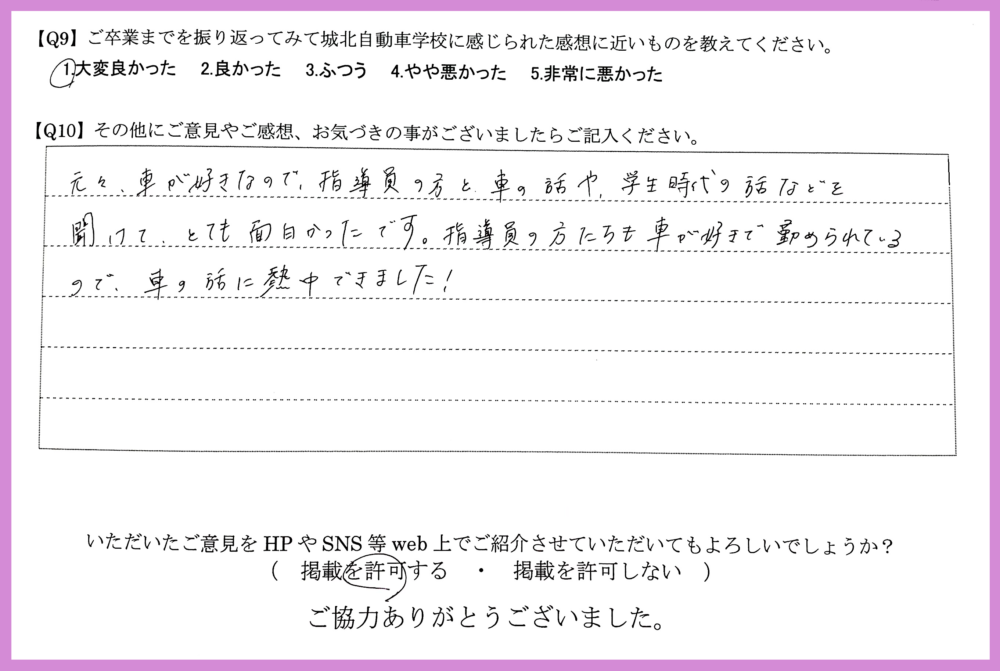 【Q9】ご卒業までを振り返ってみて城北自動車学校に感じられた感想に近いものを教えてください。
1.大変良かった 2.良かった 3.ふつう 4.やや悪かった 5.非常に悪かった
【Q10】その他にご意見やご感想、お気づきの事がございましたらご記入ください。
元々、車が好きなので、指導員の方と、車の話や、学生時代の話などを
聞けて、とても面白かったです。指導員の方たちも車が好きで勤められている
ので、車の話に熱中できました!
いただいたご意見を HP や SNS 等 web 上でご紹介させていただいてもよろしいでしょうか？
( 掲載を許可する ・ 掲載を許可しない )
ご協力ありがとうございました。